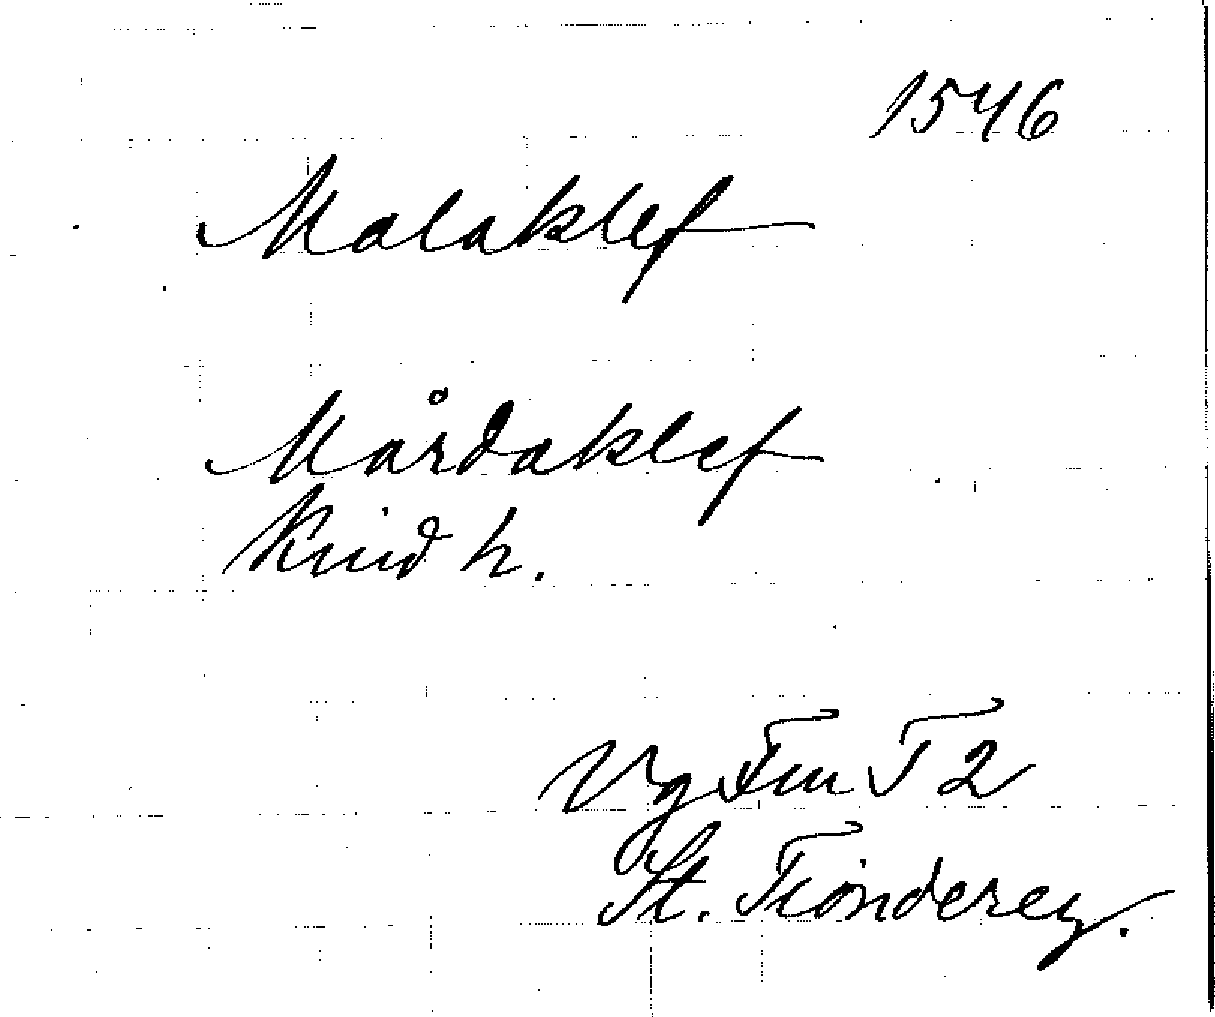 1546
Malaklef
Mårdaklef
Kind h.
Vg Fm T 2
St. Tiondereg.